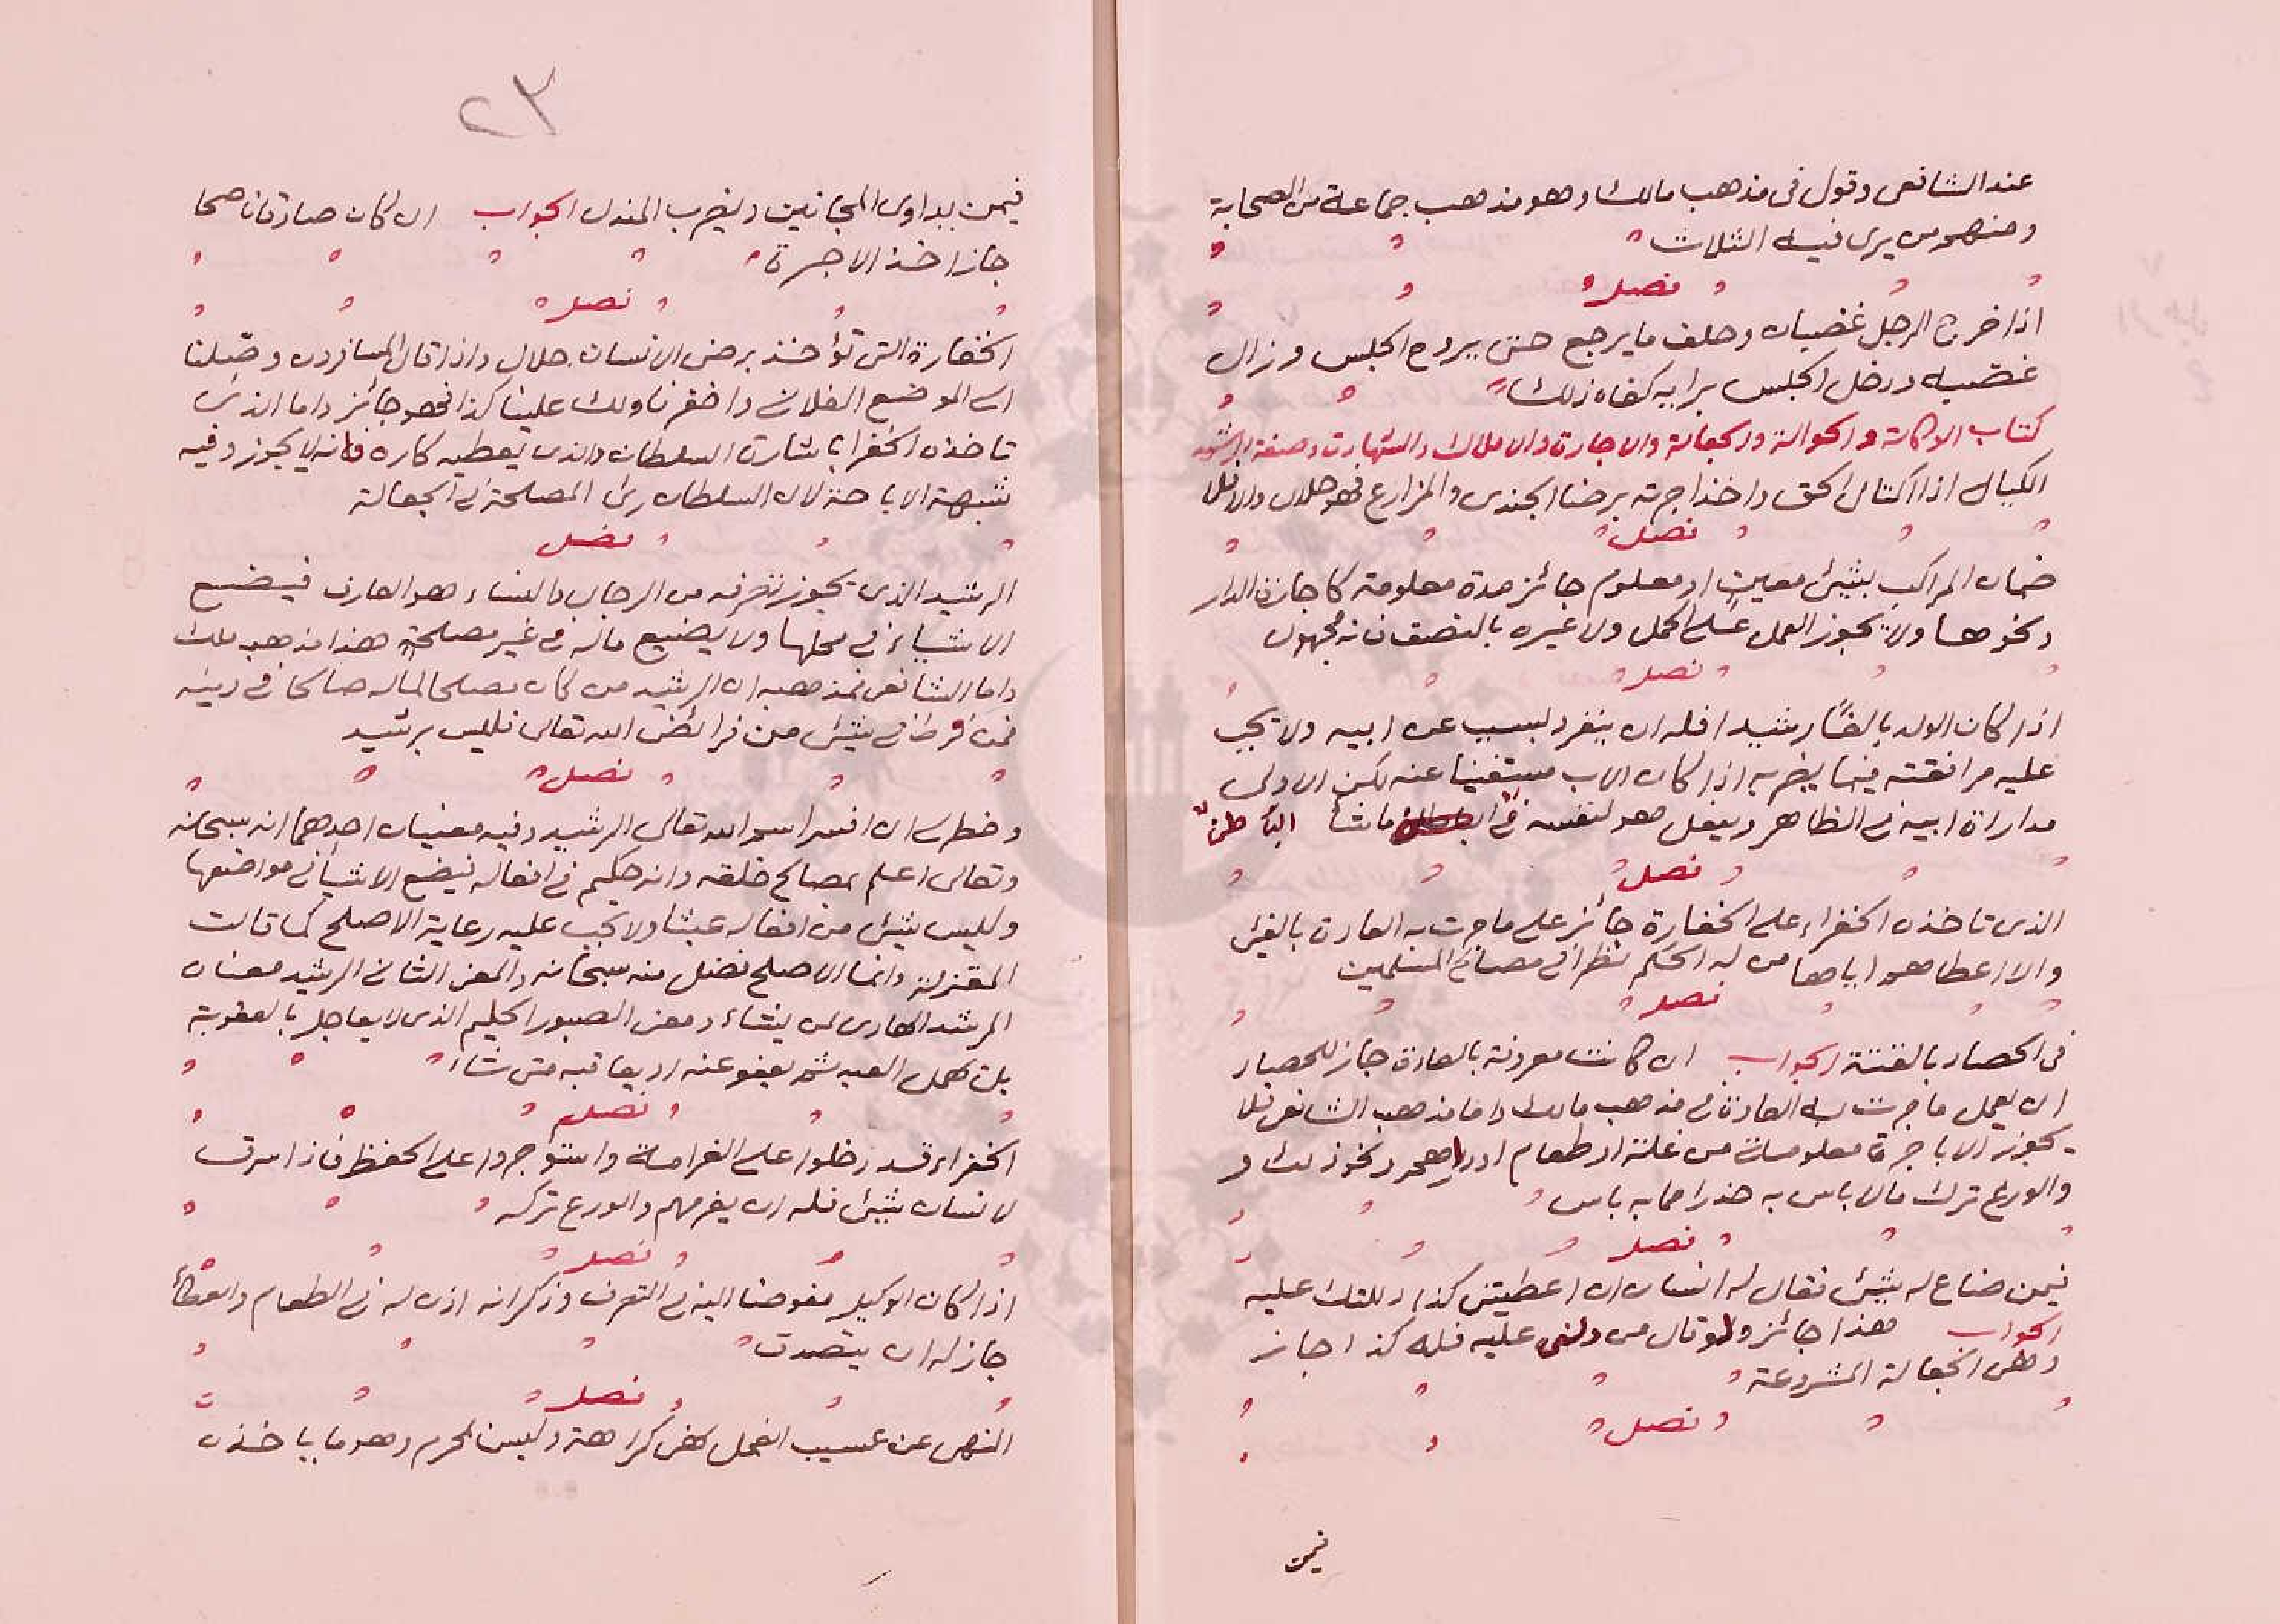 عند الشافعى وقول فى مذهب مالك وهو مذهب جماعة من الصحابة
ومنهم من يرى فيه الثلاث
فصل
اذا خرج الرجل غضبان وحلف ما يرجع حتى يروح الجلس وزال
غضبه ودخل الجلس برايه كفاه ذلك
كتاب الوكالة والحوالة والجعالة والاجارة والاملاك والشهادة وصفة الرشيد
الكيال اذا اكتال الحق واخذ اجرته برضا الجندى والمزارع فهو حلال والا فلا
فصل
ضمان المراكب بشئ معين او معلوم جائز مدة معلومة كاجارة الدار
ونحوها ولا يجوز العمل على الحمل ولا غيره بالنصف فانه مجهول
فصل
اذا كان الولد بالغًا رشيدا فله ان ينفرد بسبب عن ابيه ولا تجب
عليه مرافقته فيما يضر به اذا كان الاب مستغنيا عنه لكن الاولى
مداراة ابيه فى الظاهر ويفعل هو لنفسه فى الباطن ما شأ
فصل
الذى تاخذه الخفراء على الخفارة جائز على ما جرت به العادة بالقرى
والا اعطاهم اياها من له الحكم نظرا فى مصالح المسلمين
فصل
فى الحصاد بالقتة الجواب ان كانت معروفة بالعادة جاز للحصاد
ان يعمل ما جرت به العادة فى مذهب مالك واما مذهب الشافعى فلا
يجوز الا باجرة معلومة من غلة او طعام او دراهم ونحو ذلك و
والورع ترك ما لا باس به حذرا مما به باس
فصل
فيمن ضاع له شئ فقال له انسان ان اعطيتنى كذا دللتك عليه
الجواب هذا جائز ولو قال من دلنى عليه فله كذا جاز
وهى الجعالة المشروعة
فصل
فيمن
٢٣
فيمن يداوى المجانين ويضرب المندل الجواب ان كان صادقا ناصحا
جاز اخذ الاجرة
فصل
الخفارة التى تؤخذ برضى الانسان حلال واذا قال المسافرون وصّلنا
الى الموضع الفلانى واخفرنا ولك علينا كذا فهو جائز واما الذى
تاخذه الخفرا باشارة السلطان والذى يعطيه كاره فانه لا يجوز وفيه
شبهة الاباحة لان السلطان رئ المصلحة فى الجعالة
فصل
الرشيد الذى يجوز تصرفه من الرجال والنساء هو العارف فيضع
الاشياء فى محلها ولا يضيع ماله فى غير مصلحة هذا مذهب ملك
واما الشافعى فمذهبه ان الرشيد من كان مصلحا لماله صالحا فى دينه
فمن فرط فى شئ من فرائض الله تعالى فليس برشيد
فصل
وخطر لى ان افسر اسم الله تعالى الرشيد وفيه معنيان احدهما انه سبحانه
وتعالى اعلم بمصالح خلقه وانه حكيم فى افعاله فيضع الاشيأ فى مواضعها
وليس شئ من افعاله عبثا ولا يجب عليه رعاية الاصلح كما قالت
المعتزلة وانما الاصلح فضل منه سبحانه والمعنى الثانى الرشيد معناه
المرشد الهادى لمن يشاء ومعنى الصبور الحليم الذى لا يعاجل بالعقوبة
بل يمهل العبد ثم يعفو عنه او يعاقبه متى شاء
فصل
الخفراء قد دخلوا على الغرامة واستؤجروا على الحفظ فاذا سرق
لانسان شئ فله ان يغرمهم والورع تركه
فصل
اذا كان الوكيل مفوضا اليه فى التصرف وذكر انه اذن له فى الطعام والعطأ
جاز له ان يتصدق
فصل
النهى عن عسيب الفحل نهى كراهة وليس لمحرم وهو ما ياخذه